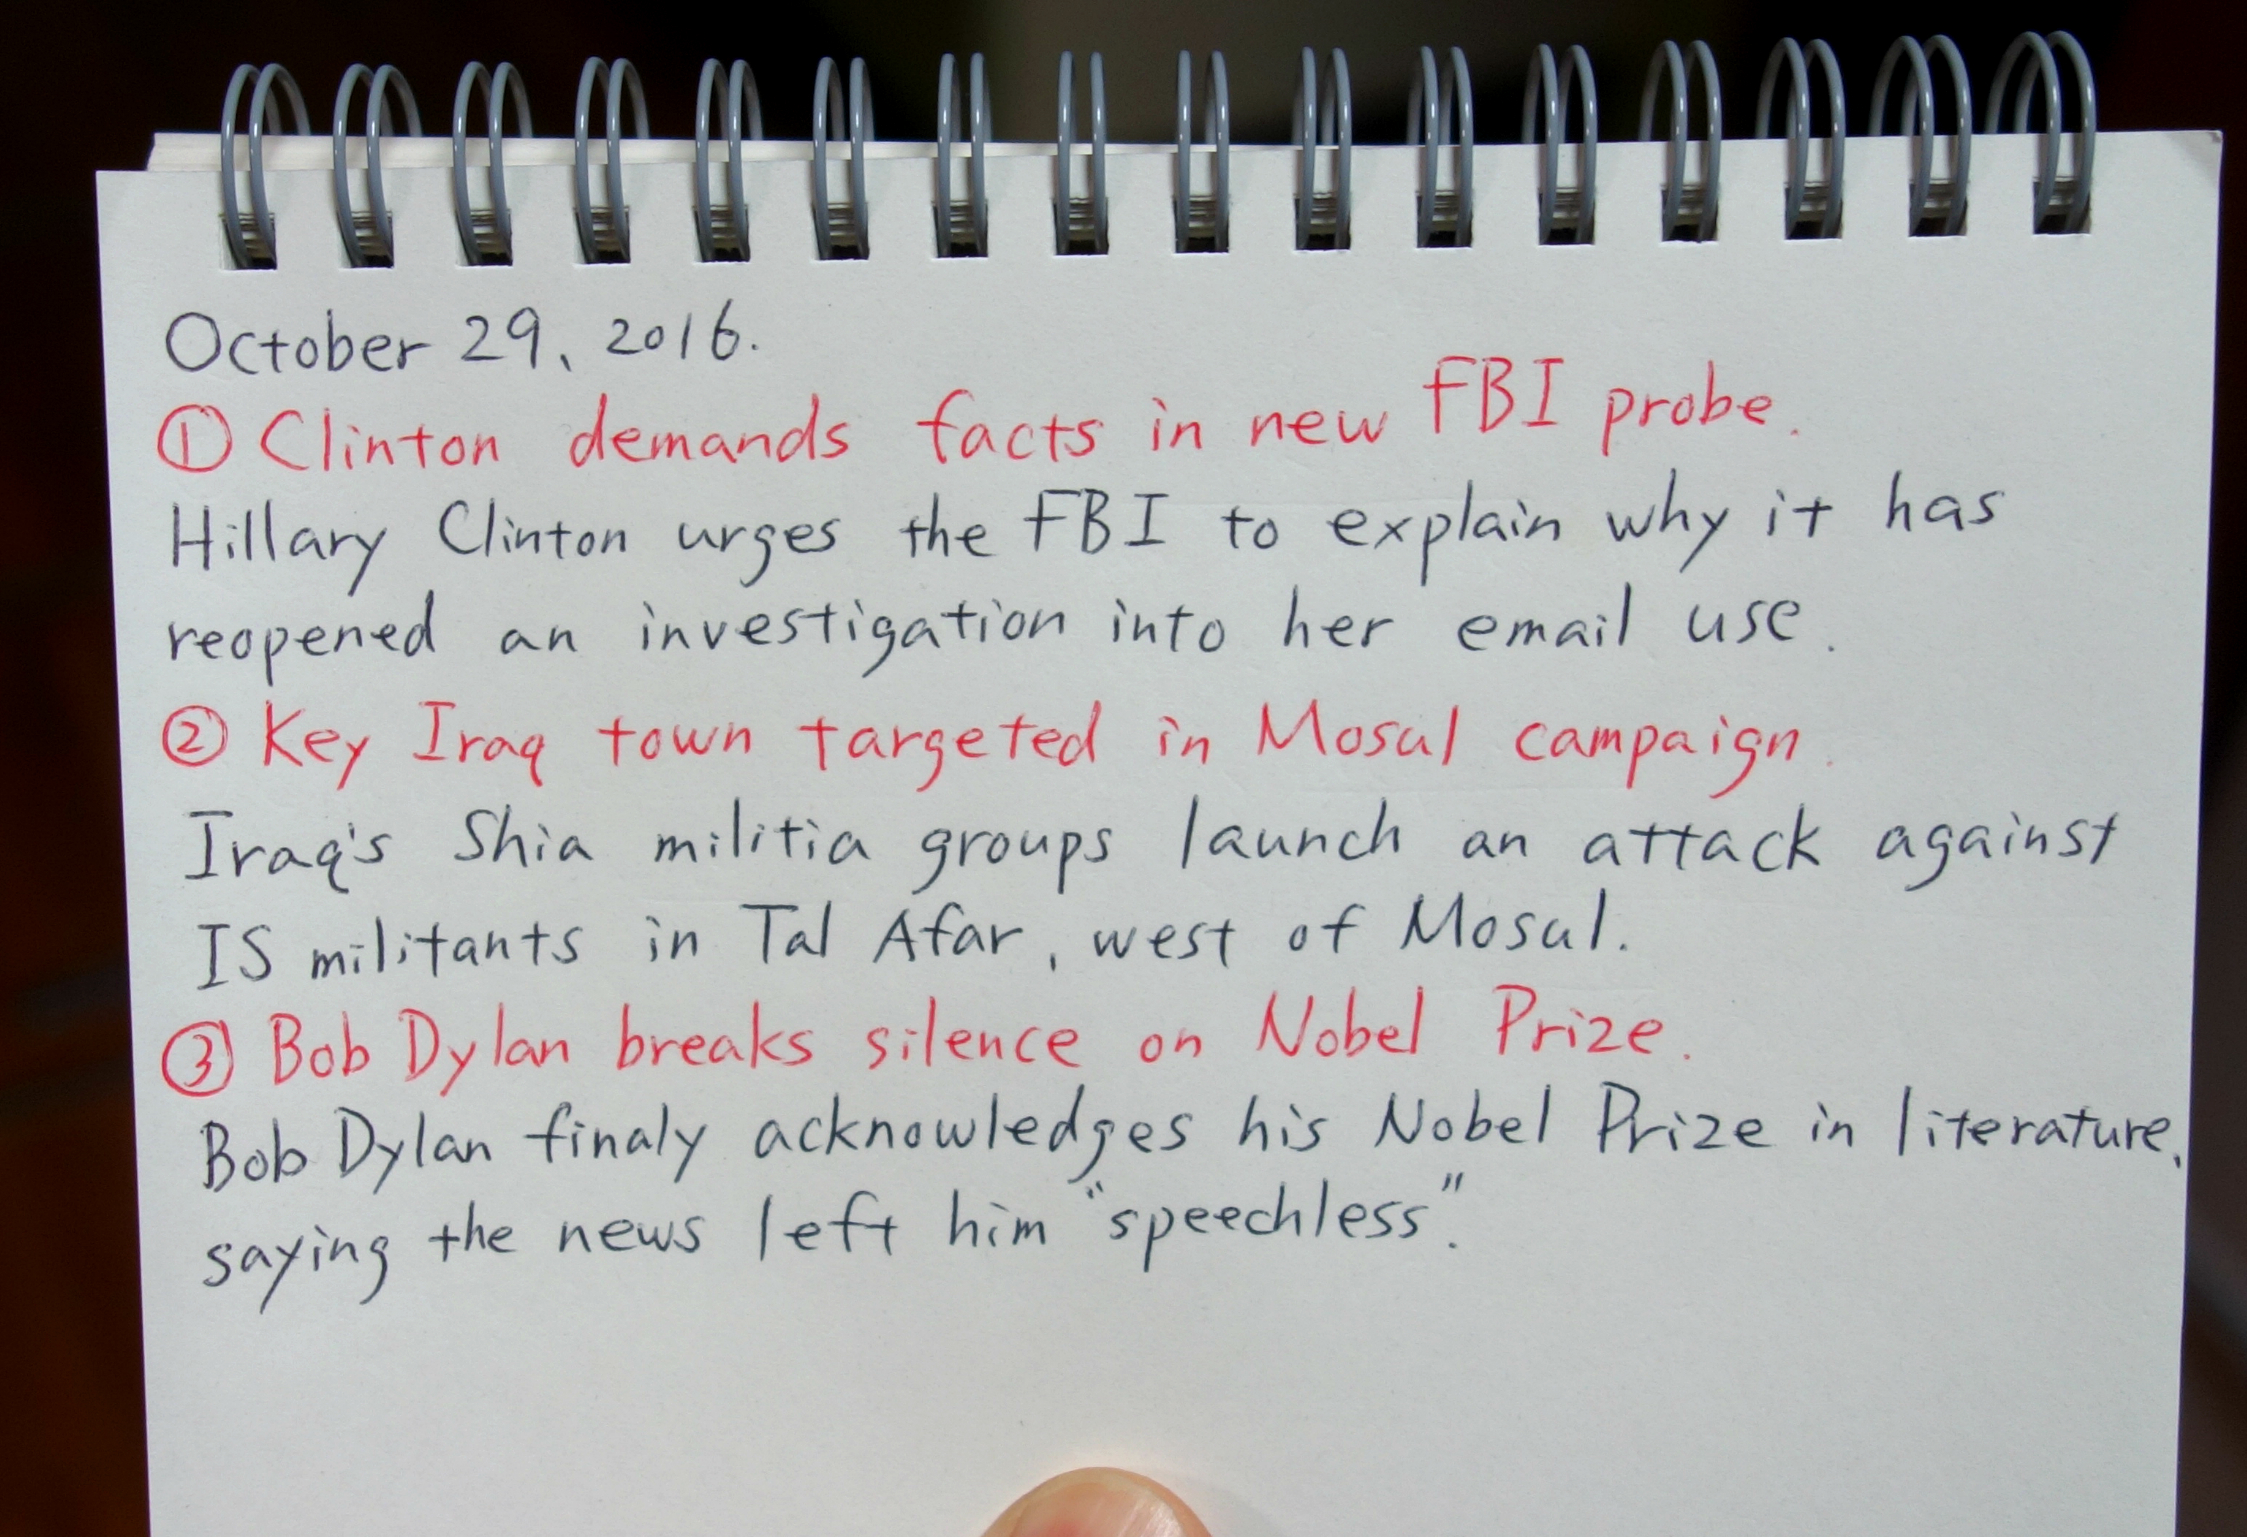 October 29, 2016.
① Clinton demands facts in new FBI probe.
Hillary Clinton urges the FBI to explain why it has
reopened an investigation into her email use.
② Key Iraq town targeted in Mosul campaign.
Iraq's Shia militia groups launch an attack against
IS militants in Tal Afar, west of Mosul.
③ Bob Dylan breaks silence on Nobel Prize.
Bob Dylan finaly acknowledges his Nobel Prize in literature,
saying the news left him "speechless".